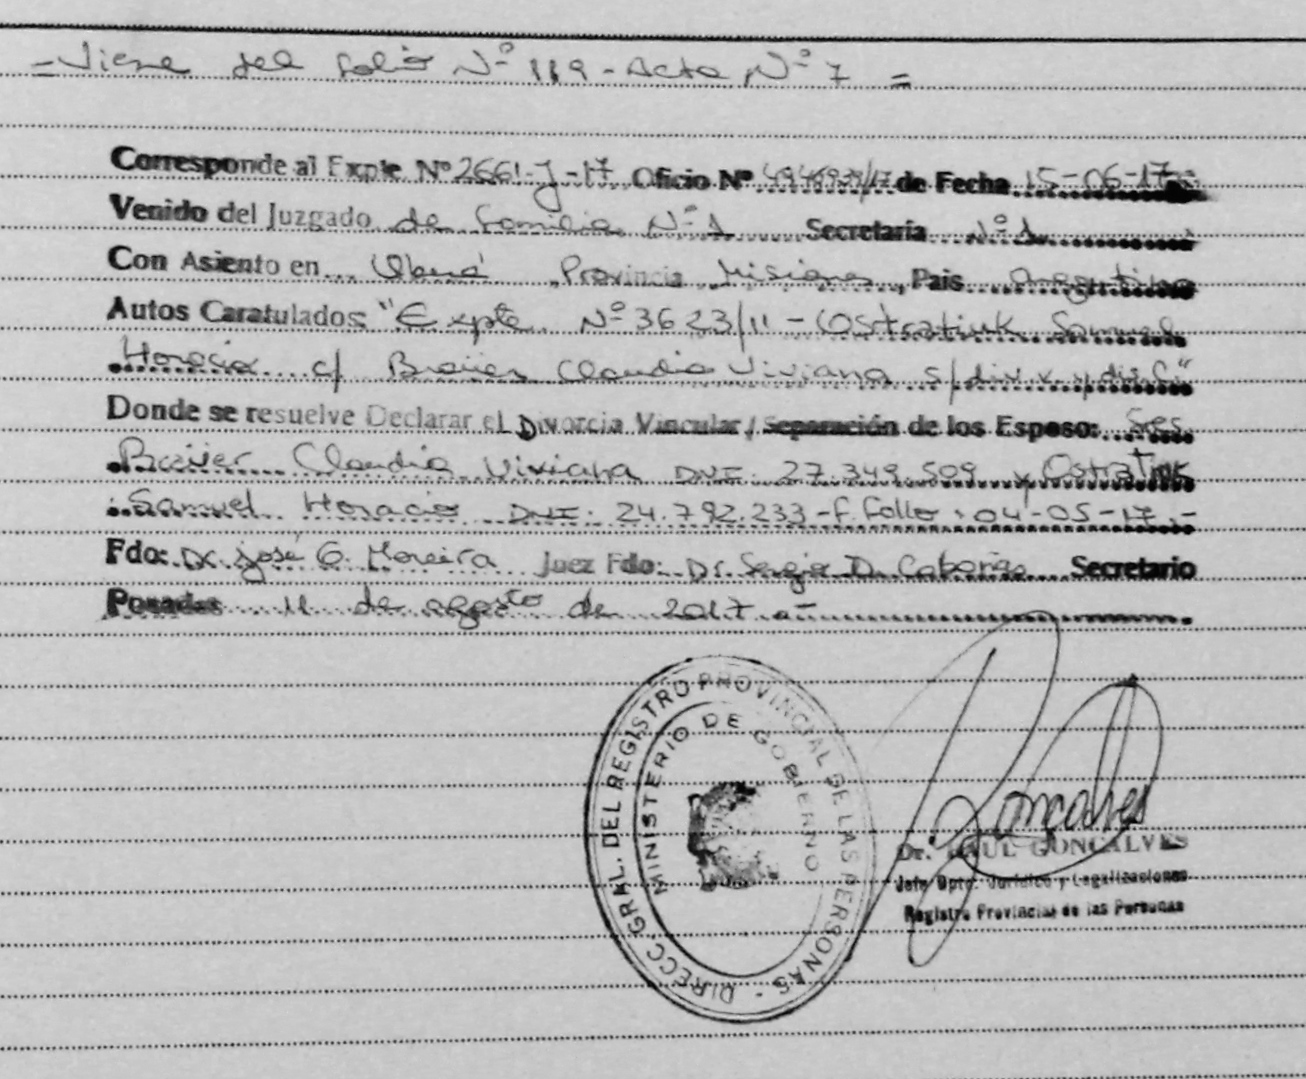 - Viene del folio Nº 119 - Acta Nº 7 =
Corresponde al Expte Nº 2661-J-17 Oficio Nº de Fecha 15-06-17
Venido del Juzgado de Familia Nº 1 Secretaria Nº 1
Con Asiento en Oberá Provincia Misiones, Pais Argentina
Autos Caratulados: "Expte. Nº 3623/11 - Ostratiuk Samuel
Horacio c/ Claudia Viviana s/div. v. y dis."
Donde se resuelve Declarar el Divorcia Vincular / Separación de los Esposo: Sres
Claudia Viviana DNI. 27.349.509 y Ostratiuk
Samuel Horacio DNI. 24.792.233 - f. Fallo: 04-05-17.-
Fdo: Dr. José G. Moreira Juez Fdo: Dr. Sergio D. Secretario
Posadas 11 de agosto de 2017
DIRECC. GRAL. DEL REGISTRO PROVINCIAL DE LAS PERSONAS -
MINISTERIO DE GOBIERNO
Goncalves
Dr. RAUL GONCALVES
Jefe Dpto. Jurídico y Legalizaciones
Registro Provincial de las Personas